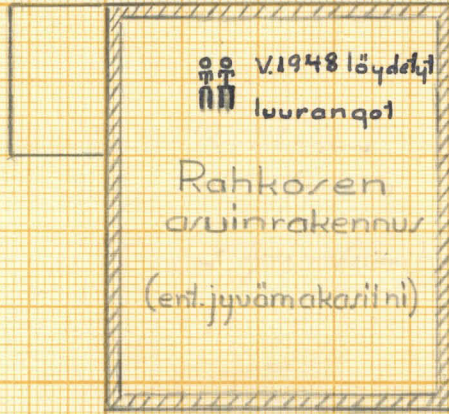 V.1948 löydetyt
luurangot
Rahkosen
asuinrakennus
(ent. jyvämakasiini)